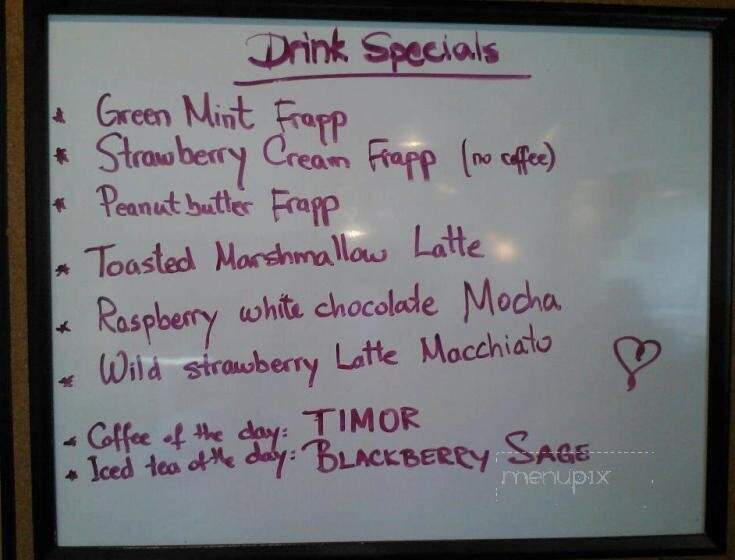 Drink Specials
* Green Mint Frapp
* Strawberry Cream Frapp (no coffee)
* Peanut butter Frapp
* Toasted Marshmallow Latte
* Raspberry white chocolate Mocha
* Wild strawberry Latte Macchiato
* Coffee of the day: TIMOR
* Iced tea of the day: BLACKBERRY SAGE
menupix